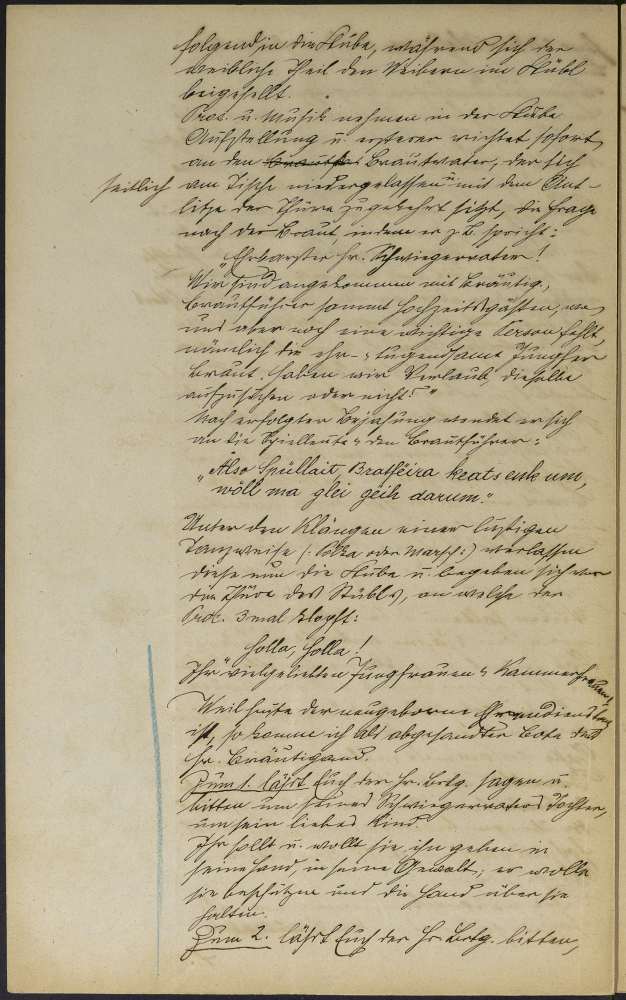 folgend in die Stube, während sich der
weibliche Theil den Weibern im Stübl
beigesellt.
Proc. u. Musik nehmen in der Stube
Aufstellung u. ersterer richtet sofort
an den Brautvater, der sich
seitlich am Tische niedergelassen u. mit dem Ant-
litze der Thüre zugekehrt sitzt, die Frage
nach der Braut indem er z. B. spricht:
„Ehrbarster Hr. Schwiegervater!
Wir sind angekommen mit Bräutig.,
Brautführer sammt Hochzeitsgästen, wo
uns aber noch eine wichtige Person fehlt,
nämlich die ehr- u. tugendsame Jungfer
Braut. Haben wir Verlaub, dieselbe
aufzusuchen oder nicht?"
Nach erfolgter Bejahung wendet er sich
an die Spielleute u. den Brautführer:
„Also Spüllait, Bratfëira keats enk um,
wöll ma glei geih darum."
Unter den Klängen einer lustigen
Tanzweise (: Polka oder Marsch :) verlassen
diese nun die Stube u. begeben sich vor
die Thüre des Stübls, an welche der
Proc. 3mal klopft:
Holla, Holla!
Ihr vielgeliebten Jungfrauen u. Kammerfrauen!
Weil heute der neugeborne Ehrendienstag
ist, so komme ich als abgesandter Bote des
Hr. Bräutigams.
Zum 1. läßt Euch der Hr. Brtg. sagen u.
bitten um seines Schwiegervaters Tochter,
um sein liebes Kind.
Ihr sollt u. wollt sie ihm geben in
seine Hand, in seine Gewalt; er wolle
sie beschützen und die Hand über sie
halten.
Zum 2. läßt Euch der Hr. Brtg. bitten,